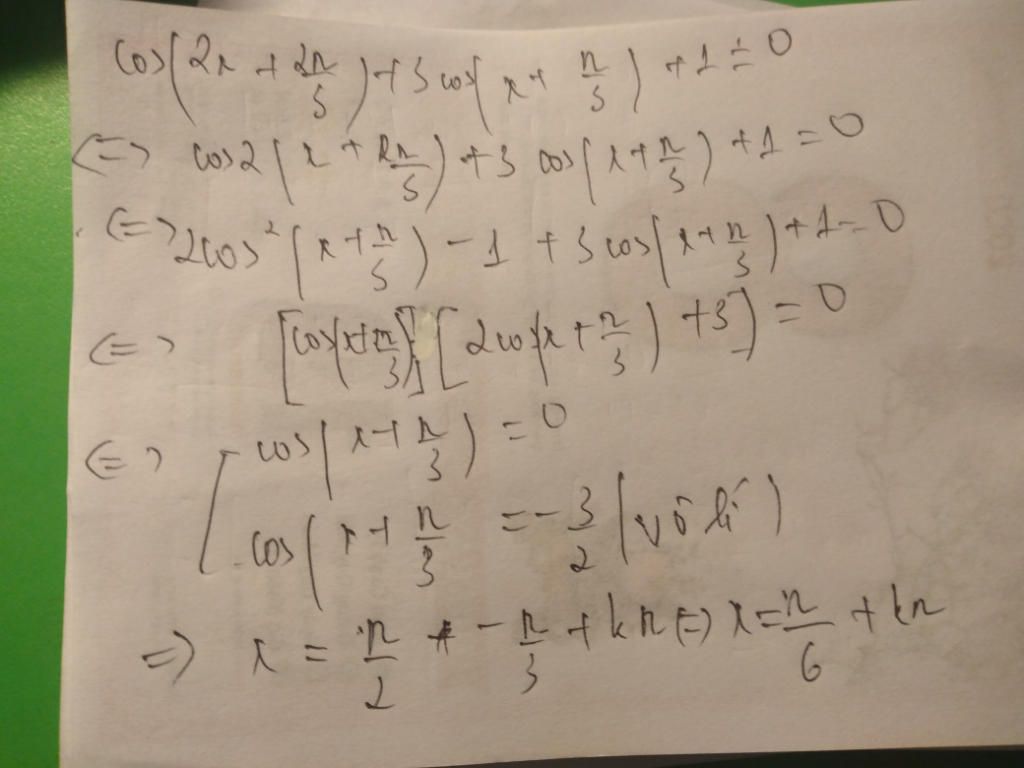 cos(2x + 2π/3) + 3 cos(x + π/3) + 1 = 0
<=> cos2(x + 2π/3) + 3 cos(x + π/3) + 1 = 0
<=> 2cos²(x + π/3) - 1 + 3 cos(x + π/3) + 1 = 0
<=> [cos(x + π/3)] [2cos(x + π/3) + 3] = 0
<=> [ cos(x + π/3) = 0
cos(x + π/3 = -3/2 (vô lí)
=> x = π/2 - π/3 + kπ (=) x = π/6 + kπ